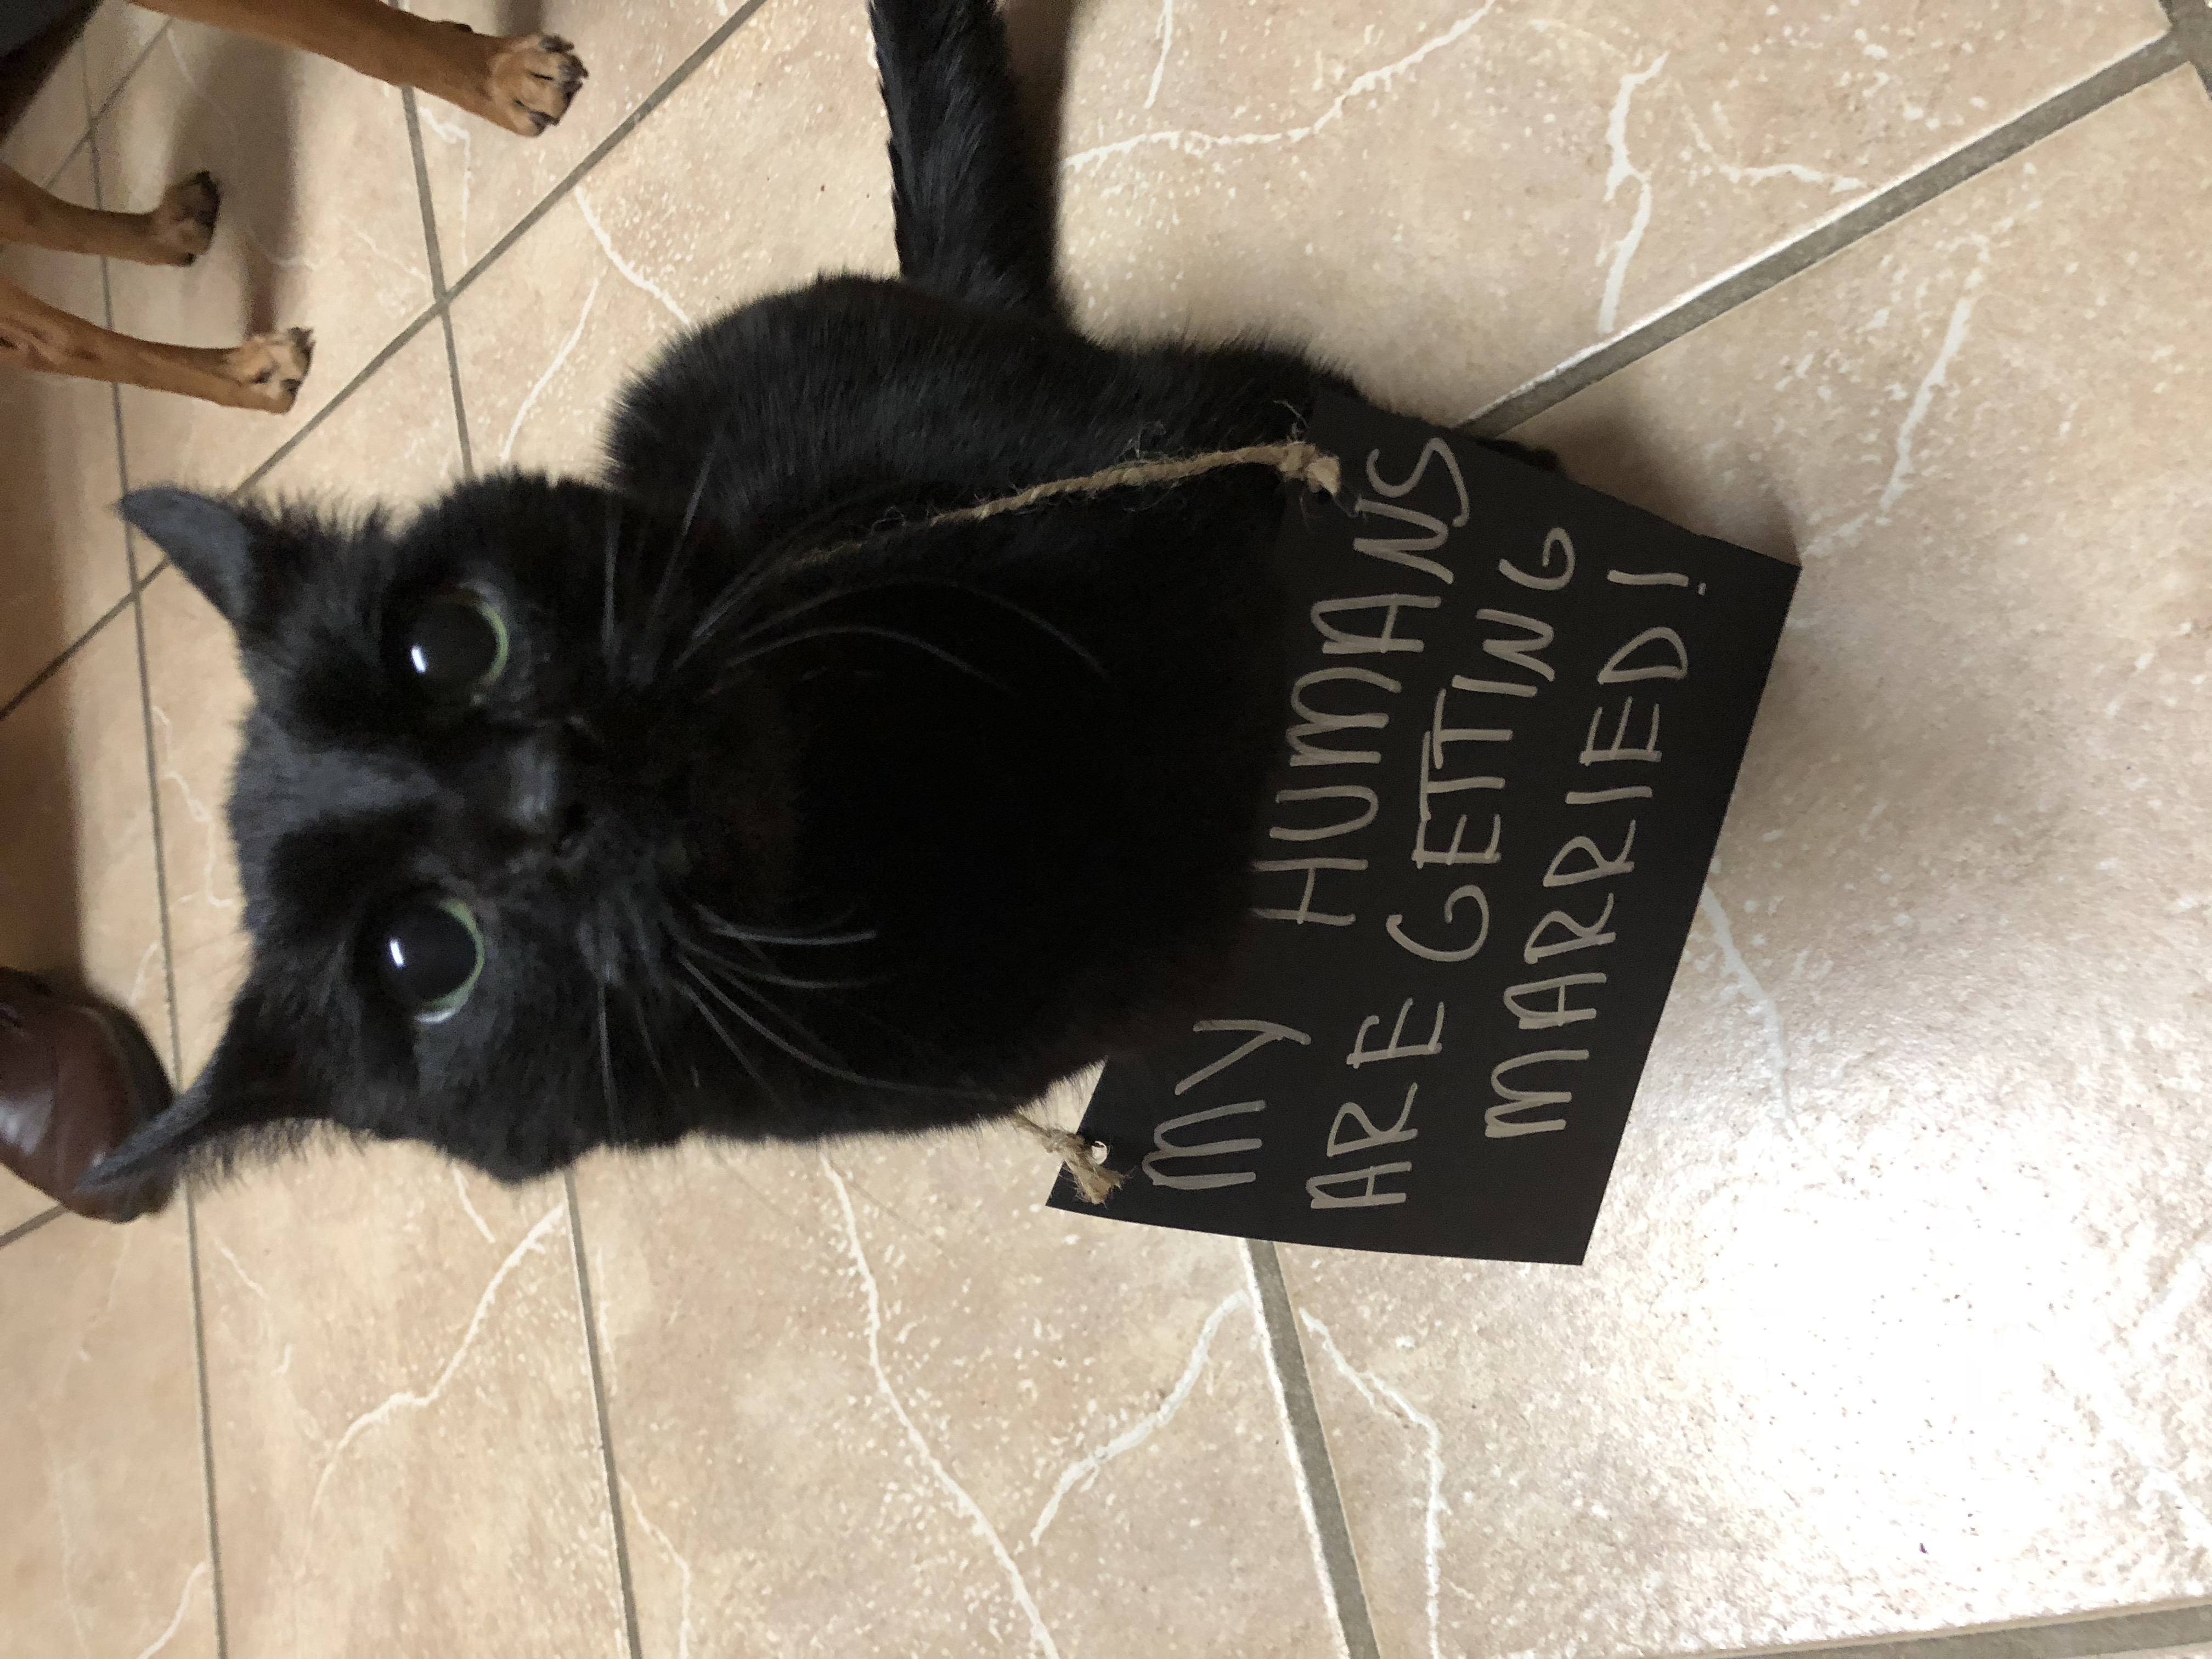 MY HUMANS
ARE GETTING
MARRIED!